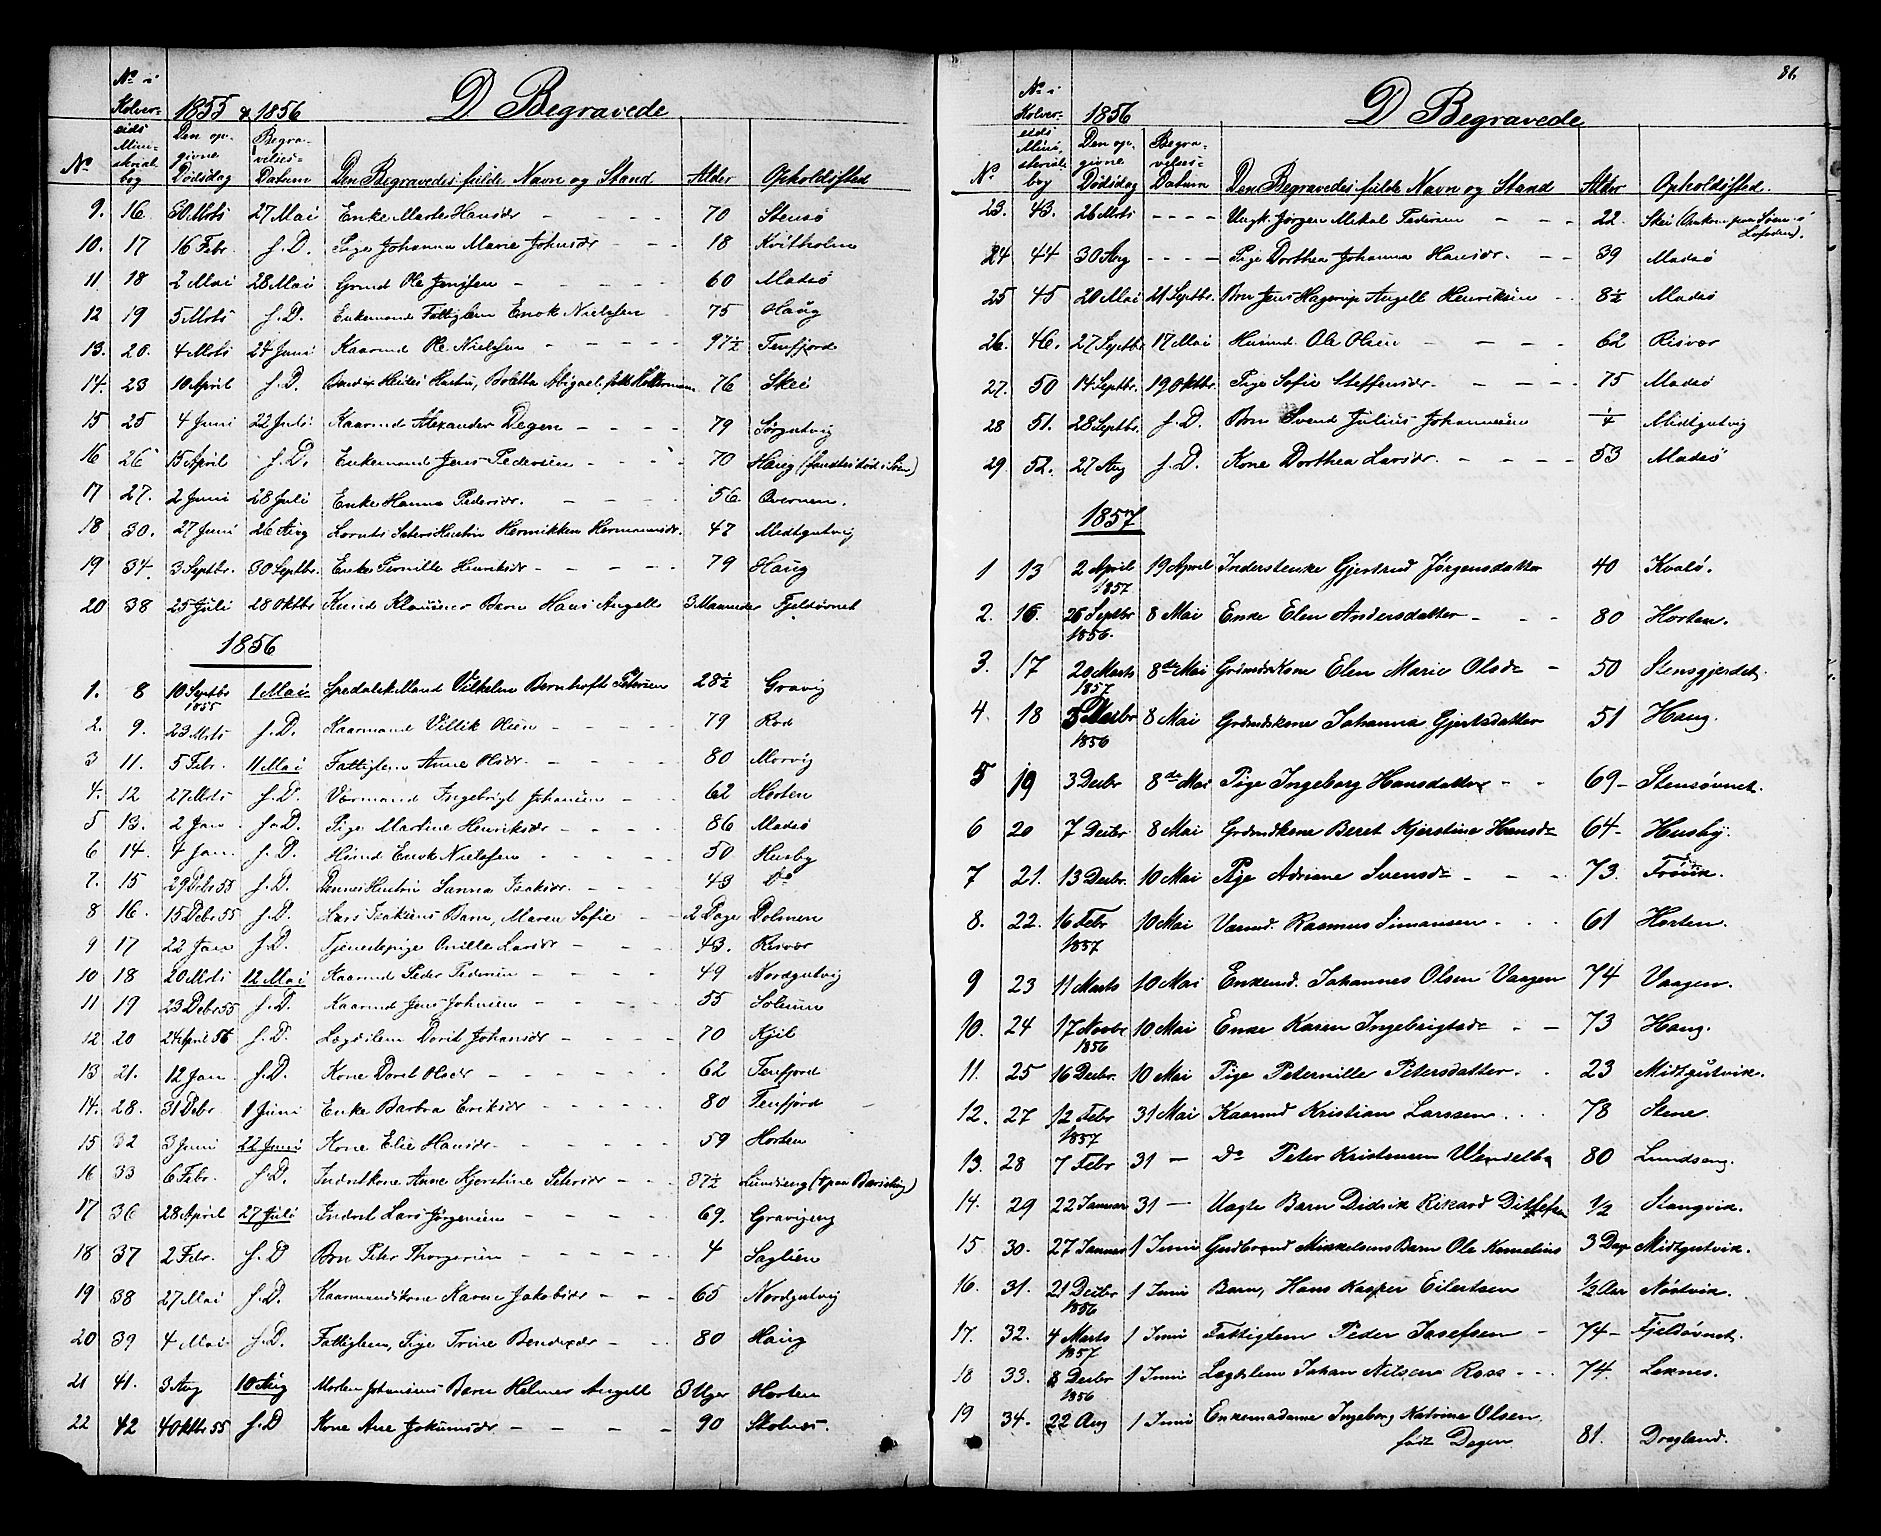 No i
Kolver-
eids
Mini-
sterial
bog
1855 & 1856
D Begravede
No
Den op-
givne
Dödsdag
Begra-
velses-
Datum
Den Begravedes fulde Navn og Stand
Alder
Opholdssted
9. 16. 30 Mrts 27 Mai Enke Marte Hansdr 70 Stensö
10. 17 16 Febr. s. D. Pige Johanna Marie Johnsdr 18 Kvitholm
11 18 2 Mai 28 Mai Grmd Ole Jensen 60 Madsö
12 19 5 Mrts s. D. Enkemand Fattiglem Enok Nielssen 75 Haug
13. 20. 4 Mrts 24 Juni Kaarmd Ole Nielssen 97½ Tenfjord
14. 23 10 April s. D. Hustru, Boletta Abigael 76 Skei
15 25 4 Juni 22 Juli Kaarmd Alexander Degen 79 Sörgutvig
16 26 15 April s. D. Enkemand Jens Pedersen 70 Haug
17 27. 2 Juni 28 Juli Enke Hanna Pedersdr. 56
18 30. 27 Juni 26 Aug Hustru Henrikken Hermannsdr. 47 Midtgutvig
19 34. 3 Septbr. 30 Septbr. Enke Pernille Henriksdr 79 Haug
20 38 25 Juli 28 Oktbr Knud Klausens Barn Hans Angell 3 Maaneder Fjeldövnet
1856
1. 8 10 Septbr 1 Mai Spedalsk Mand Vilhelm Bernhoft Petersen 28½ Gravig
1855
2. 9. 23 Mrts s. D. Kaarmand Villik Olsen 79 Rod
3 11. 5 Febr. 11 Mai Fattiglem Anne Olsdr. 80 Morvig
4. 12 27 Mrts s. D. Vaarmand Ingebrigt Johansen 62 Horten
5 13. 2 Jan s. D. Pige Martine Henriksdr 86 Madsö
6 14. 4 Jan s. D. Huusmd Enok Nielssen 50 Husby
7. 15 29 Debr 55 s. D. Dennes Hustru Sanna Isaksdr. 43 Do
8 16. 15 Debr 55 s. D. Lars Isaksens Barn, Maren Sofie 2 Dage Dolmen
9 17 22 Jan s. D. Tjenestepige Larsdr 43. Risvær
10 18 20 Mrts 12 Mai Kaarmd Peder Pedersen 49 Nordgutvig
11 19 23 Debr 55 s. D. Kaarmd Jens Johnsen 55 Solsem
12 20 24 April 56 s. D. Lægdslem Dorit Johansdr 70 Kjil
13 21. 12 Jan s. D. Kone Doret Olsdr 62 Tenfjord
14. 28. 31 Debr 1 Juni Enke Barbra Eriksdr 80 Tenfjord
15 32 3 Juni 22 Juni Kone Elie Hansdr. 59 Horten
16 33 6 Febr. s. D. Indrstkone Anne Kjerstine Petersdr 37½ Lundseng
17 36 28 April 27 Juli Indrst Lars Jörgensen 69. Gravigeng
18 37 2 Febr. s. D Brn Peter Thorgersen 4
19 38 27 Mai s. D. Kaarmandskone Karen Jakobsdr 65 Nordgutvig
20 39 4 Mai s. D. Fattiglem, Pige Trine Bendixdr 80 Haug
21 41. 3 Aug 10 Aug Morten Johansens Barn Helmer Angell 3 Uger Horten
22 42 4 Oktbr 55 s. D Kone Ane Jokumsdr 90
86.
No i
Kolver-
eids
Mini-
sterial
bog
1856
D Begravede
No
Den op-
givne
Dödsdag
Begra-
velses-
Datum
Den Begravedes fulde Navn og Stand
Alder
Opholdssted.
23. 43. 26 Mrts Ungk. Jörgen Mikal Pedersen 22. Skei
Lofoden).
24 44 30 Aug Pige Dorthea Johanna Hansdr. 39 Madsö
25 45 20 Mai 21 Septbr. Brn Jens Hagerup Angell Henriksen 8½ Madsö
26. 46. 27 Septbr 17 Mai Husmd. Ole Olsen 62 Risvær
27. 50 14 Septbr. 19 Oktbr. Pige Sofie Steffensdr. 75 Madsö
28 51. 28 Septbr. s. D. Brn Svend Julius Johannesen ¼ Midtgutvig
29. 52. 27 Aug s. D. Kone Dorthea Larsdr. 53 Madsö
1857
1 13 2 April 19 April Inderstenke Gjertrud Jörgensdatter 40 Kvalö.
1857
2. 16. 26 Septbr 8 Mai Enke Elen Andersdatter 80 Horten.
1856.
3. 17 20 Marts 8de Mai Grdmdskone Elen Marie Olsdr 50 Stensgjerdet.
1857
4. 18 8 Mai Grdmdskone Johanna Gjertsdatter 51 Haug.
1856
5 19 3 Desbr 8de Mai Pige Ingeborg Hansdatter 69 Stensövnet.
6 20 7 Desbr 8 Mai Grdmdkone Beret Kjerstine Hansdr 64 Husby.
7 21. 13 Desbr. 10 Mai Pige Adriane Svensdr 73. Frövik.
8. 22. 16 Febr 10 Mai Vaarmd. Rasmus Simonsen 61 Horten.
1857
9 23 11 Marts 10 Mai Enkemd. Johannes Olsen Vaagen 74 Vaagen.
10. 24 17 Novbr 10 Mai Enke Karen Ingebrigtsdr 73 Haug.
1856
11. 25 16 Desbr. 10 Mai Pige Peternille Petersdatter. 23 Midtgutvik.
12. 27 12 Febr 31 Mai Kaarmd Kristian Larssen 78 Stene
1857
13. 28 7 Febr 31 — Do Peter Kristensen Wendelbo 80 Lundseng.
14. 29 22 Januar 31 — Uægte Barn Didrik Rikard Ditlefsen ½ Stangvik.
15 30. 27 Januar 1 Juni Gudbrand Mikkelsens Barn Ole Kornelius 3 Dage Midtgutvik.
16. 31. 21 Desbr 1 Juni Barn, Hans Kasper Eilertsen ½ Aar Nöstvik.
1856
17. 32. 4 Marts 1 Juni Fattiglem Peder Josefsen 74 Fjeldövnet.
1857
18 33. 8 Desbr 1 Juni Lægdslem Johan Nilsen Ross 74. Leknes.
1856
19 34. 22 Aug 1 Juni Enkemadame Ingeborg Katrine Olsen
född Degen 81. Dragland.